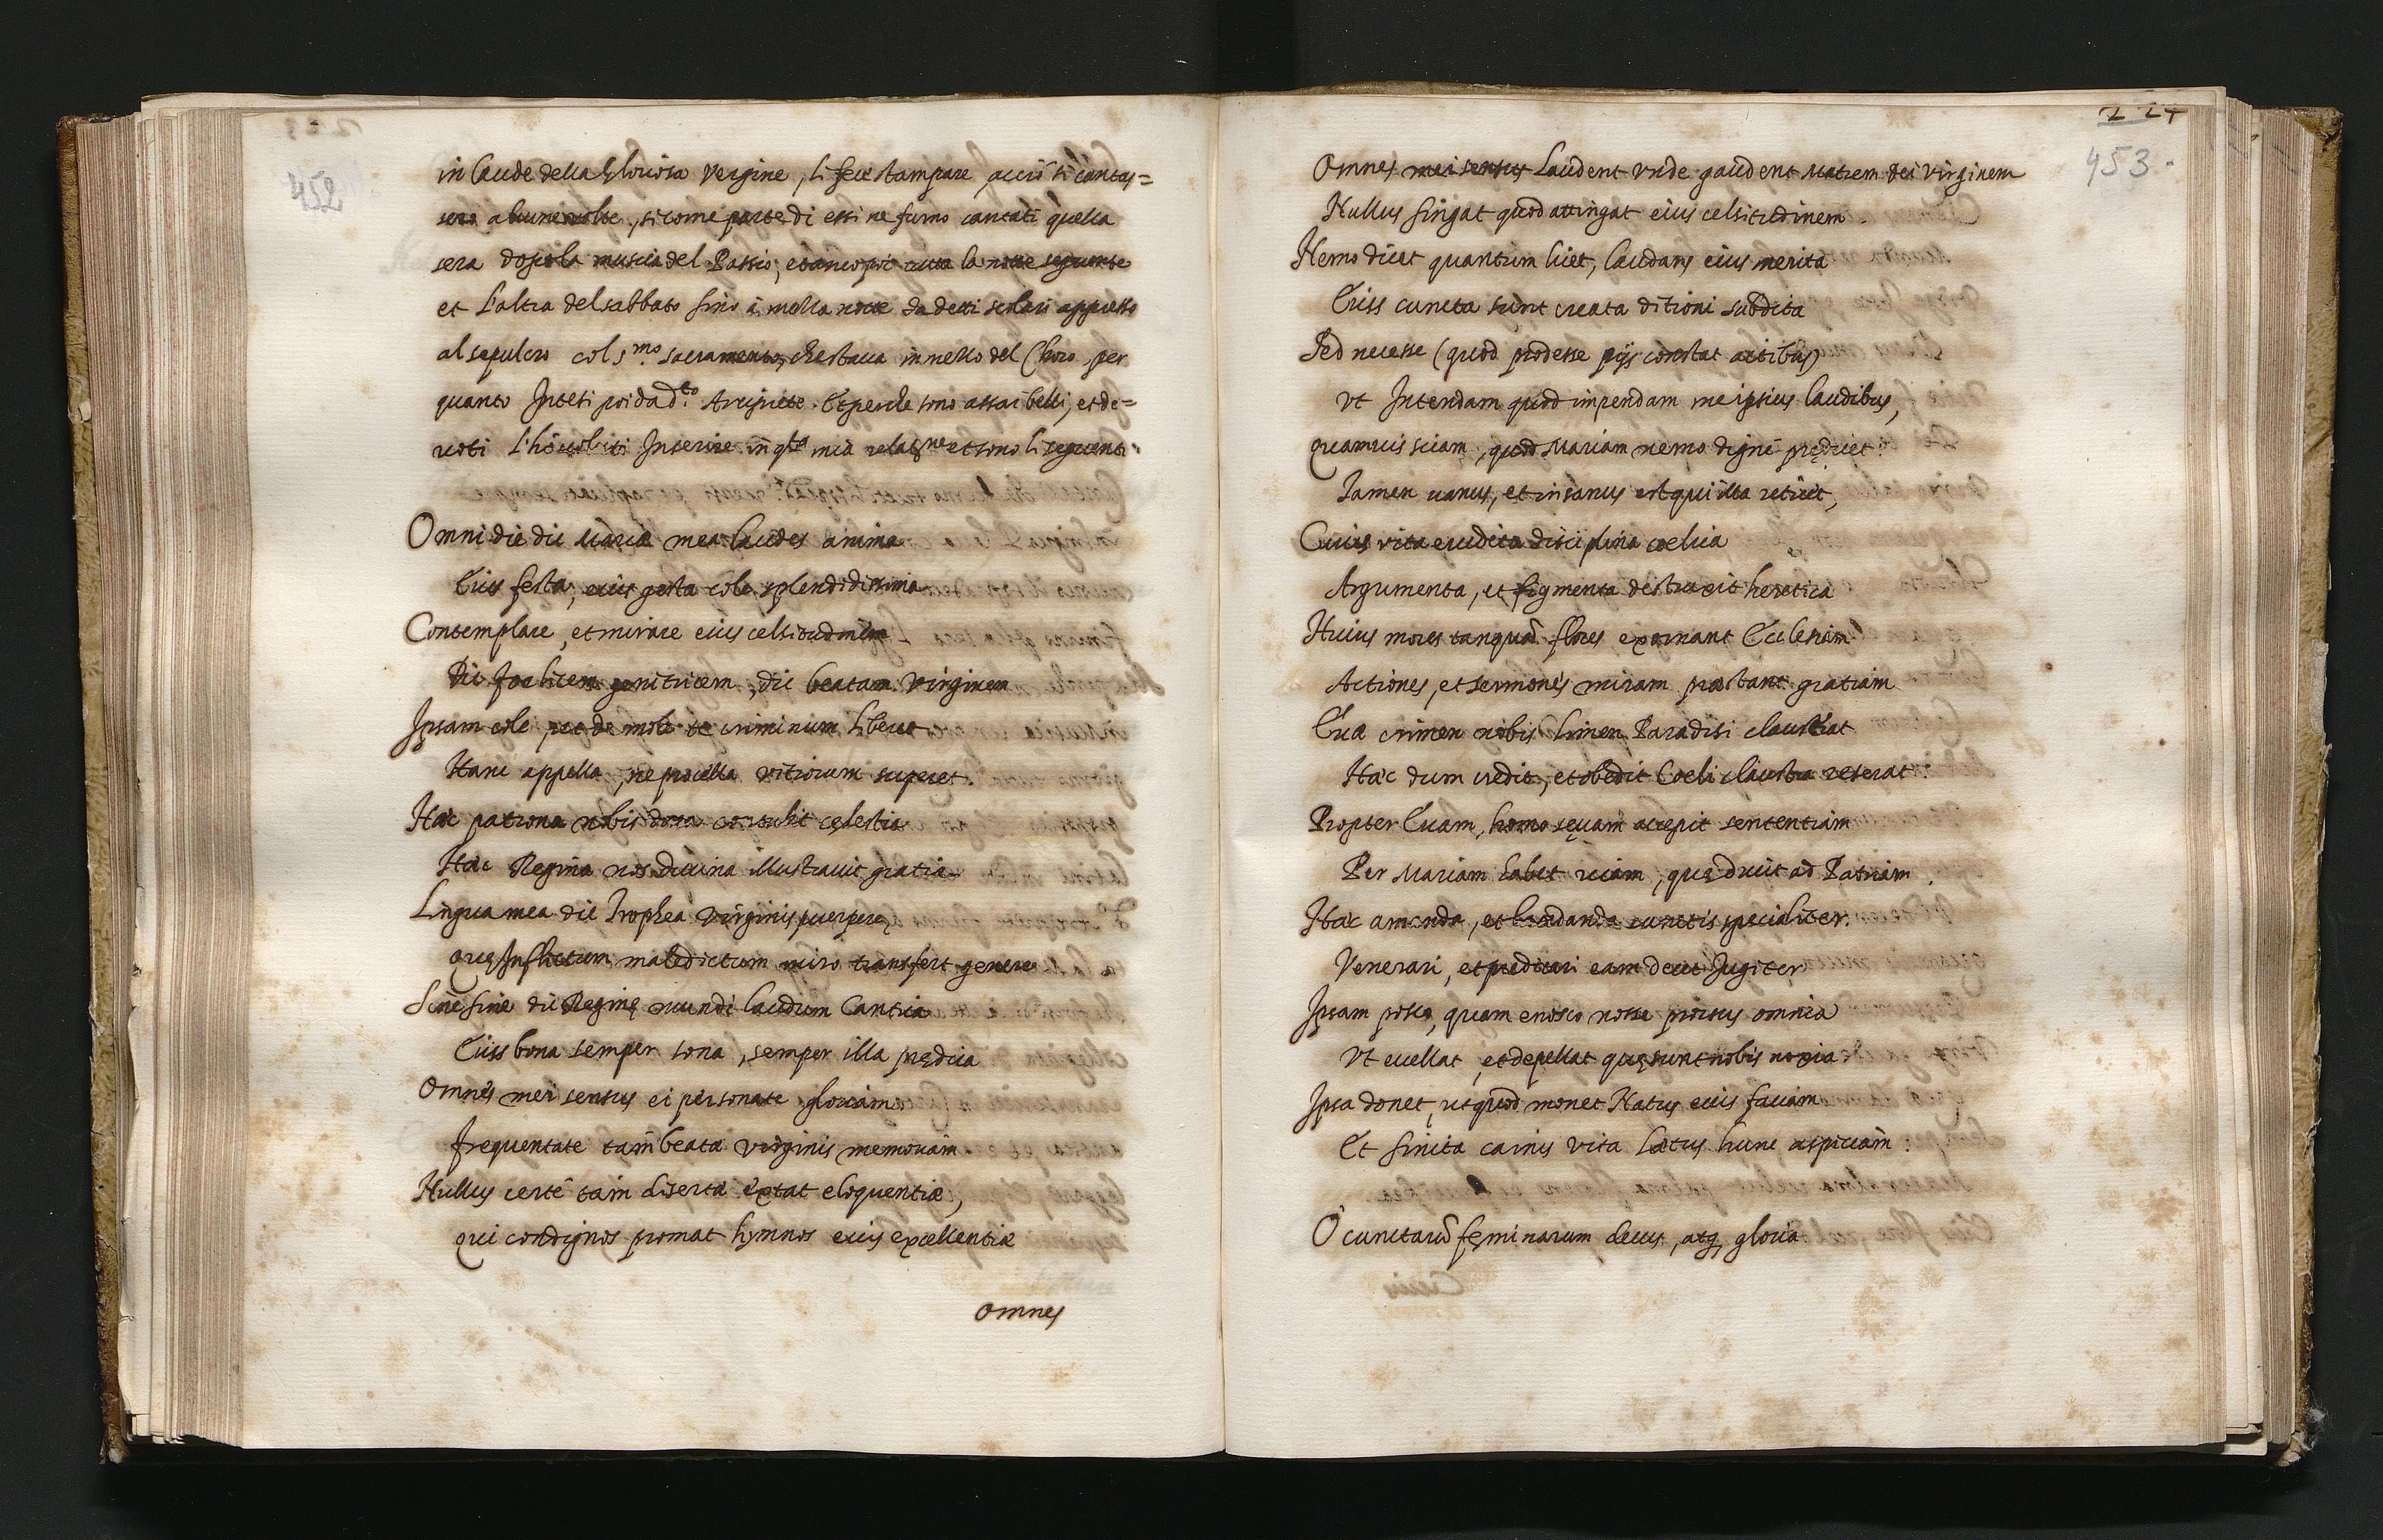 452
in laude della Gloriosa Vergine, li fece stampare, acciò si cantas=
sero alcune volte, si come parte di essi ne furno cantati quella
sera dopò la musica del Passio, et anco poi tutta la notte seguente
et l'altra del sabbato sino à mezza notte da detti scolari appresso
al sepulcro col S.mo Sacramento, che staua in mezzo del Choro, per
quanto Intesi poi da d.to Arciprete. Et perche sono assai belli, et de=
uoti l'hò uoluti Inserire in q.ta mia relat.ne et sono li seguenti.
Omni die dic Mariæ mea laudes anima
Eius festa, eius gesta cole splendidissima
Contemplare, et mirare eius celsitudinem
Dic foelicem genitricem, dic beatam Virginem
Ipsam cole, vt de mole te criminum liberet
Hanc appella, ne procella vitiorum superet.
Hæc patrona nobis dona contulit cęlestia
Hæc Regina nos diuina illustrauit gratia
Lingua mea dic Trophea Virginis puerperę
quę Inflictum maledictum miro transfert genere
Sine fine dic Reginę mundi laudum Cantica
Eius bona semper sona, semper illa prędica
Omnes mei sensus ei personate gloriam
frequentate tam beatæ Virginis memoriam
Nullus certè tam disertæ extat eloquentiæ,
qui condignos promat hymnos eius excellentiæ
omnes
224
453.
Omnes mei sensus Laudent vnde gaudent Matrem dei Virginem
Nullus fingat quod attingat eius celsitudinem.
Nemo dicet quantum licet, laudans eius merita
Eius cuncta sunt creata ditioni subdita
Sed necesse (quod prodesse pijs constat actibus)
vt Intendam quod impendam me ipsius laudibus,
quamuis sciam, quod Mariam nemo dignè prędicet.
Tamen uanus, et insanus est qui illa reticet,
Cuius vita erudita disciplina coelica
Argumenta, et figmenta destruxit heretica
Huius mores tanquã flores exornant Ecclesiam
Actiones, et sermones miram præstant gratiam
Euæ crimen nobis limen Paradisi clauserat
Hæc dum credit, et obedit Coeli claustra reserat.
Propter Euam, homo sęuam accepit sententiam
Per Mariam habet uiam, quę ducit ad Patriam.
Hæc amanda, et laudanda cunctis specialiter.
Venerari, et predicari eam decet Jugiter
Ipsam posco, quam cnosco nosse prorsus omnia
Vt euellat, et depellat quę sunt nobis noxia.
Ipsa donet, ut quod monet Natus eius faciam
Et finita carnis vita Lætus hunc aspiciam.
O cunctarũ fęminarum decus, atq gloria